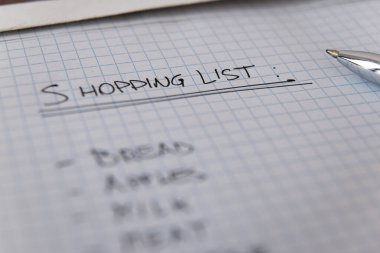 SHOPPING LIST :.
- BREAD
- APPLES
- MILK
- MEAT